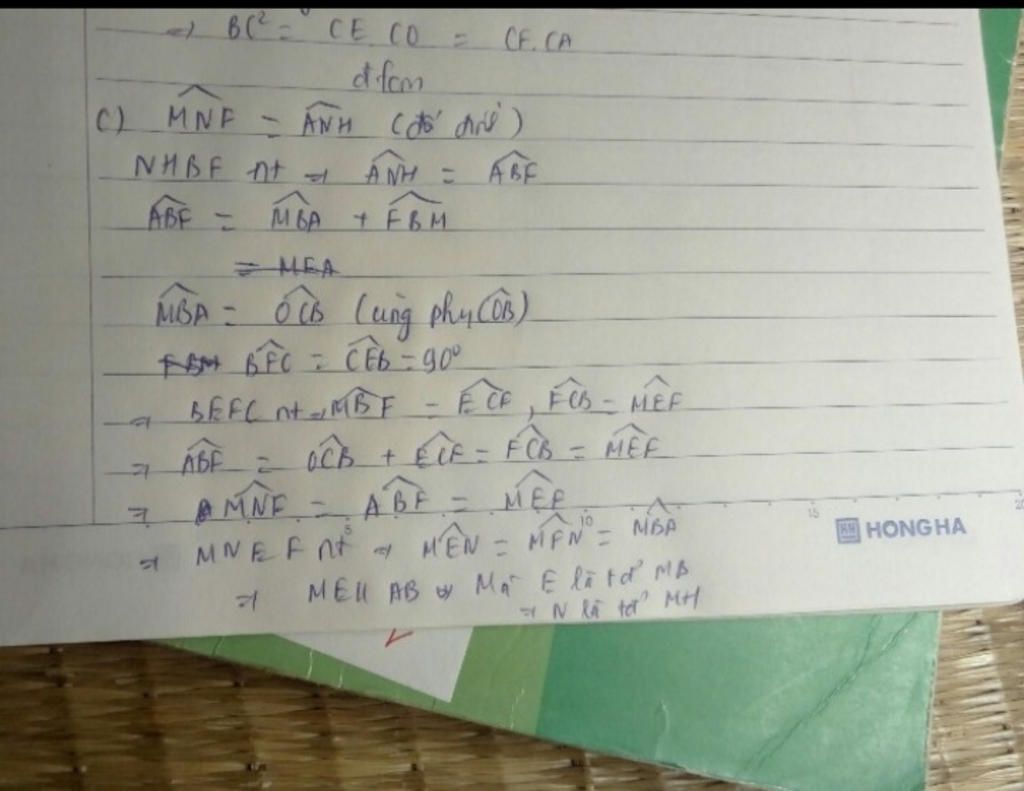 => BC² = CE.CO = CF.CA
đfcm
c) MNF = ANH (đối đỉnh)
NHBF nt => ANH = ABF
ABF = MBA + FBM
= MEA
MBA = OCB (cùng phụ COB)
FBM BFC = CEB = 90°
=> BEFC nt => MBF = ECF, FCB = MEF
=> ABF = OCB + ECF = FCB = MEF
=> A MNF = ABF = MEF
=> MNEF nt => MEN = MFN = MBA
=> MEH AB Mà E là tđ MB
=> N là tđ MH
5 10 15 20
HONG HA